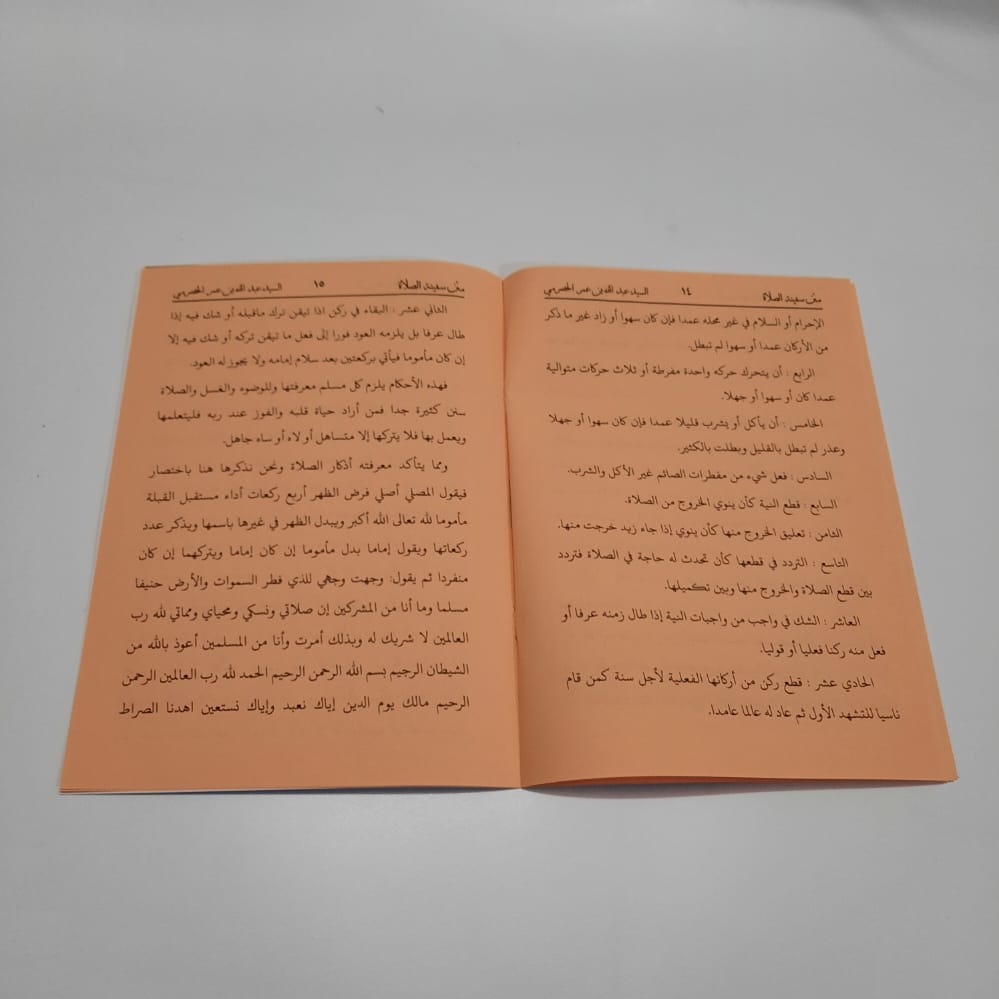 متن سفينة الصلاة ١٤ السيد عبد الله بن عمر الحضرمي
الإحرام أو السلام في غير محله عمدا فإن كان سهوا أو زاد غير ما ذكر
من الأركان عمدا أو سهوا لم تبطل.
الرابع : أن يتحرك حركه واحدة مفرطة أو ثلاث حركات متوالية
عمدا كان أو سهوا أو جهلا.
الخامس : أن يأكل أو يشرب قليلا عمدا فإن كان سهوا أو جهلا
وعذر لم تبطل بالقليل وبطلت بالكثير.
السادس : فعل شيء من مفطرات الصائم غير الأكل والشرب.
السابع : قطع النية كأن ينوي الخروج من الصلاة.
الثامن : تعليق الخروج منها كأن ينوي إذا جاء زيد خرجت منها.
التاسع : التردد في قطعها كأن تحدث له حاجة في الصلاة فتردد
بين قطع الصلاة والخروج منها وبين تكميلها.
العاشر : الشك في واجب من واجبات النية إذا طال زمنه عرفا أو
فعل منه ركنا فعليا أو قوليا.
الحادي عشر : قطع ركن من أركانها الفعلية لأجل سنة كمن قام
ناسيا للتشهد الأول ثم عاد له عالما عامدا.
متن سفينة الصلاة ١٥ السيد عبد الله بن عمر الحضرمي
الثاني عشر : البقاء في ركن اذا تيقن ترك ماقبله أو شك فيه إذا
طال عرفا بل يلزمه العود فورا إلى فعل ما تيقن تركه أو شك فيه إلا
إن كان مأموما فيأتي بركعتين بعد سلام إمامه ولا يجوز له العود.
فهذه الأحكام يلزم كل مسلم معرفتها وللوضوء والغسل والصلاة
سنن كثيرة جدا فمن أراد حياة قلبه والفوز عند ربه فليتعلمها
ويعمل بها فلا يتركها إلا متساهل أو لاه أو ساه جاهل.
ومما يتأكد معرفته أذكار الصلاة ونحن نذكرها هنا باختصار
فيقول المصلي أصلي فرض الظهر أربع ركعات أداء مستقبل القبلة
مأموما لله تعالى الله أكبر ويبدل الظهر في غيرها باسمها ويذكر عدد
ركعاتها ويقول إماما بدل مأموما إن كان إماما ويتركهما إن كان
منفردا ثم يقول: وجهت وجهي للذي فطر السموات والأرض حنيفا
مسلما وما أنا من المشركين إن صلاتي ونسكي ومحياي ومماتي لله رب
العالمين لا شريك له وبذلك أمرت وأنا من المسلمين أعوذ بالله من
الشيطان الرجيم بسم الله الرحمن الرحيم الحمد لله رب العالمين الرحمن
الرحيم مالك يوم الدين إياك نعبد وإياك نستعين اهدنا الصراط